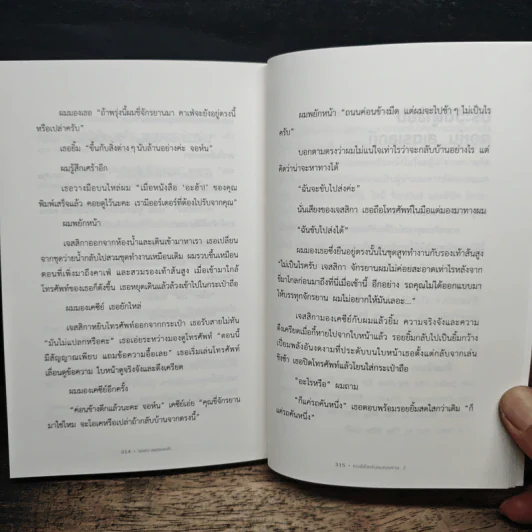 ผมมองเธอ “ถ้าพรุ่งนี้ผมขี่จักรยานมา คาเฟ่จะยังอยู่ตรงนี้
หรือเปล่าครับ”
เธอยิ้ม “ขึ้นกับสิ่งต่าง ๆ นับล้านอย่างค่ะ จอห์น”
ผมรู้สึกเศร้าอีก
เธอวางมือบนไหล่ผม “เมื่อหนังสือ ‘อะฮ้า!’ ของคุณ
พิมพ์เสร็จแล้ว คอยดูไว้นะคะ เรามีออร์เดอร์ที่ต้องไปรับจากคุณ”
ผมพยักหน้า
เจสสิกาออกจากห้องน้ำและเดินเข้ามาหาเรา เธอเปลี่ยน
จากชุดว่ายน้ำกลับไปสวมชุดทำงานเหมือนเดิม ผมรวบขึ้นเหมือน
ตอนที่เพิ่งมาถึงคาเฟ่ และสวมรองเท้าส้นสูง เมื่อเข้ามาใกล้
โทรศัพท์ของเธอก็ดังขึ้น เธอหยุดเดินแล้วล้วงเข้าไปในกระเป๋าถือ
ผมมองเคซีย์ เธอยักไหล่
เจสสิกาหยิบโทรศัพท์ออกจากกระเป๋า เธอรับสายไม่ทัน
“มันไม่แปลกหรือคะ” เธอเอ่ยระหว่างมองดูโทรศัพท์ “ตอนนี้
มีสัญญาณเพียบ แถมข้อความอื้อเลย” เธอเริ่มเล่นโทรศัพท์
เลื่อนดูข้อความ ใบหน้าดูจริงจังและตึงเครียด
ผมมองเคซีย์อีกครั้ง
“ค่อนข้างดึกแล้วนะคะ จอห์น” เคซีย์เอ่ย “คุณขี่จักรยาน
มาใช่ไหม จะโอเคหรือเปล่าถ้ากลับบ้านจากตรงนี้”
314
ผมพยักหน้า “ถนนค่อนข้างมืด แต่ผมจะไปช้า ๆ ไม่เป็นไร
ครับ”
บอกตามตรงว่าผมไม่แน่ใจเท่าไรว่าจะกลับบ้านอย่างไร แต่
คิดว่าน่าจะหาทางได้
“ฉันจะขับไปส่งค่ะ”
นั่นเสียงของเจสสิกา เธอถือโทรศัพท์ในมือแต่มองมาทางผม
“ฉันขับไปส่งได้”
ผมมองเธอซึ่งยืนอยู่ตรงนั้นในชุดสูททำงานกับรองเท้าส้นสูง
“ไม่เป็นไรครับ เจสสิกา จักรยานผมไม่ค่อยสะอาดเท่าไรหลังจาก
ขี่มาไกลก่อนมาถึงที่นี่เมื่อเช้านี้ อีกอย่าง รถคุณไม่ได้ออกแบบมา
ให้บรรทุกจักรยาน ผมไม่อยากให้มันเลอะ...”
เจสสิกามองเคซีย์กับผมแล้วยิ้ม ความจริงจังและความ
ตึงเครียดเมื่อกี้หายไปจากใบหน้าแล้ว รอยยิ้มกลับไปเป็นยิ้มกว้าง
เปี่ยมพลังอันงดงามที่ประดับบนใบหน้าเธอตั้งแต่กลับจากเล่น
ชิงช้า เธอปิดโทรศัพท์แล้วโยนใส่กระเป๋าถือ
“อะไรหรือ” ผมถาม
“ก็แค่รถคันหนึ่ง” เธอตอบพร้อมรอยยิ้มสดใสกว่าเดิม “ก็
แค่รถคันหนึ่ง”
315